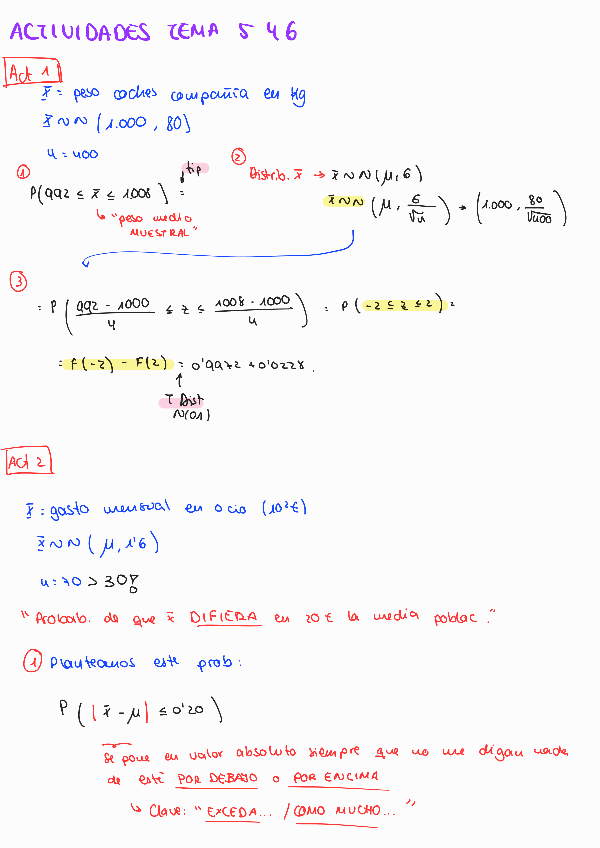 ACTIVIDADES TEMA 5 Y 6
Act 1
X = peso coches compañia en Kg
X ~ N (1.000, 80)
n = 400
① P(992 ≤ x̄ ≤ 1008) =
tip
"peso medio
MUESTRAL"
② Distrib. x̄ → x̄ ~ N (μ, σ)
x̄ ~ N (μ, σ/√n) → (1.000, 80/√400)
③
= P ( 992 - 1000 / 4 ≤ z ≤ 1008 - 1000 / 4 ) = P (-2 ≤ z ≤ 2) =
= F(-2) - F(2) = 0'9972 + 0'0228.
↑
T Dist
N(0,1)
Act 2
X = gasto mensual en ocio (10²€)
X ~ N ( μ, 1'6)
n = 70 > 30!
"Probab. de que x̄ DIFIERA en 20€ la media poblac."
① Planteamos este prob:
P ( | x̄ - μ | ≤ 0'20 )
Se pone en valor absoluto siempre que no me digan nada
de esté POR DEBAJO o POR ENCIMA
↳ Clave: "EXCEDA... / COMO MUCHO..."